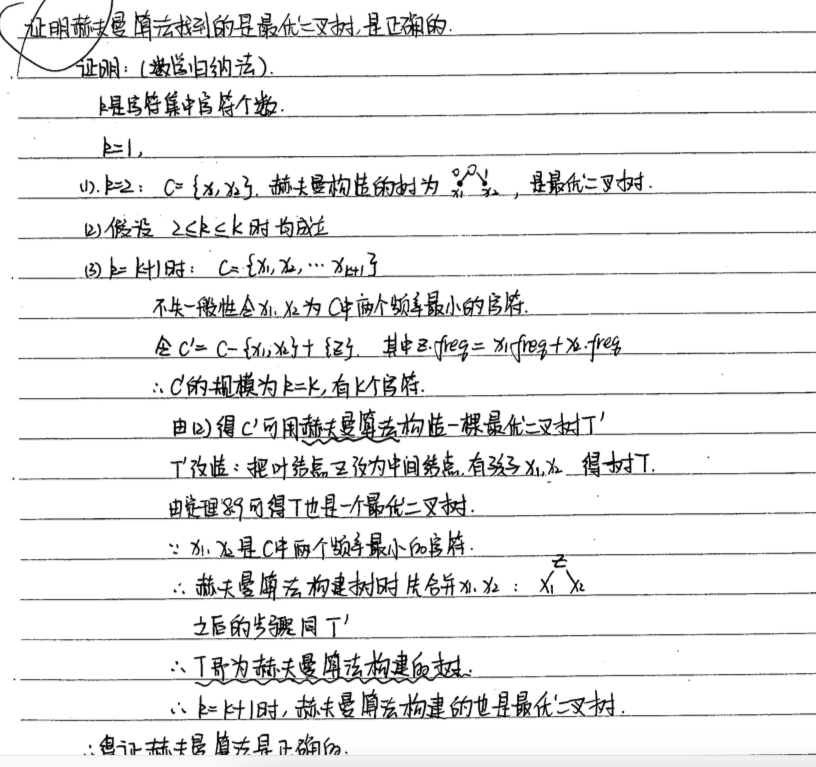 证明赫夫曼算法找到的是最优二叉树,是正确的.
证明:(数学归纳法).
k是字符集中字符个数.
k=1,
(1).k=2: C={x₁,x₂}. 赫夫曼构造的树为 0 1 x₁ x₂ ,是最优二叉树.
(2)假设 2≤k≤K时均成立
(3) k=K+1时: C={x₁,x₂,…x_{K+1}}
不失一般性令x₁.x₂为C中两个频率最小的字符.
令C'=C-{x₁,x₂}+{z}. 其中z.freq=x₁.freq+x₂.freq
∴C'的规模为k=K,有K个字符.
由(2)得C'可用赫夫曼算法构造一棵最优二叉树T'
T'改造:把叶结点z改为中间结点.有孩子x₁,x₂ 得树T.
由定理8.9可得T也是一个最优二叉树.
∵ x₁.x₂是C中两个频率最小的字符.
∴赫夫曼算法构建树时先合并x₁.x₂: z x₁ x₂
之后的步骤同T'
∴T即为赫夫曼算法构建的树.
∴ k=K+1时,赫夫曼算法构建的也是最优二叉树.
∴得证赫夫曼算法是正确的.